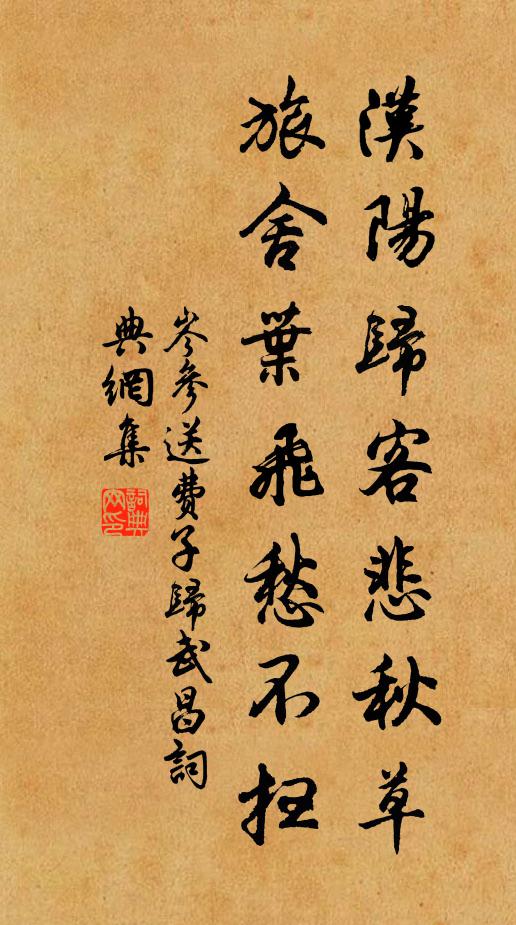 漢陽歸客悲秋草
旅舍葉飛愁不掃
岑參送費子歸武昌詞
典網集
詞典網印